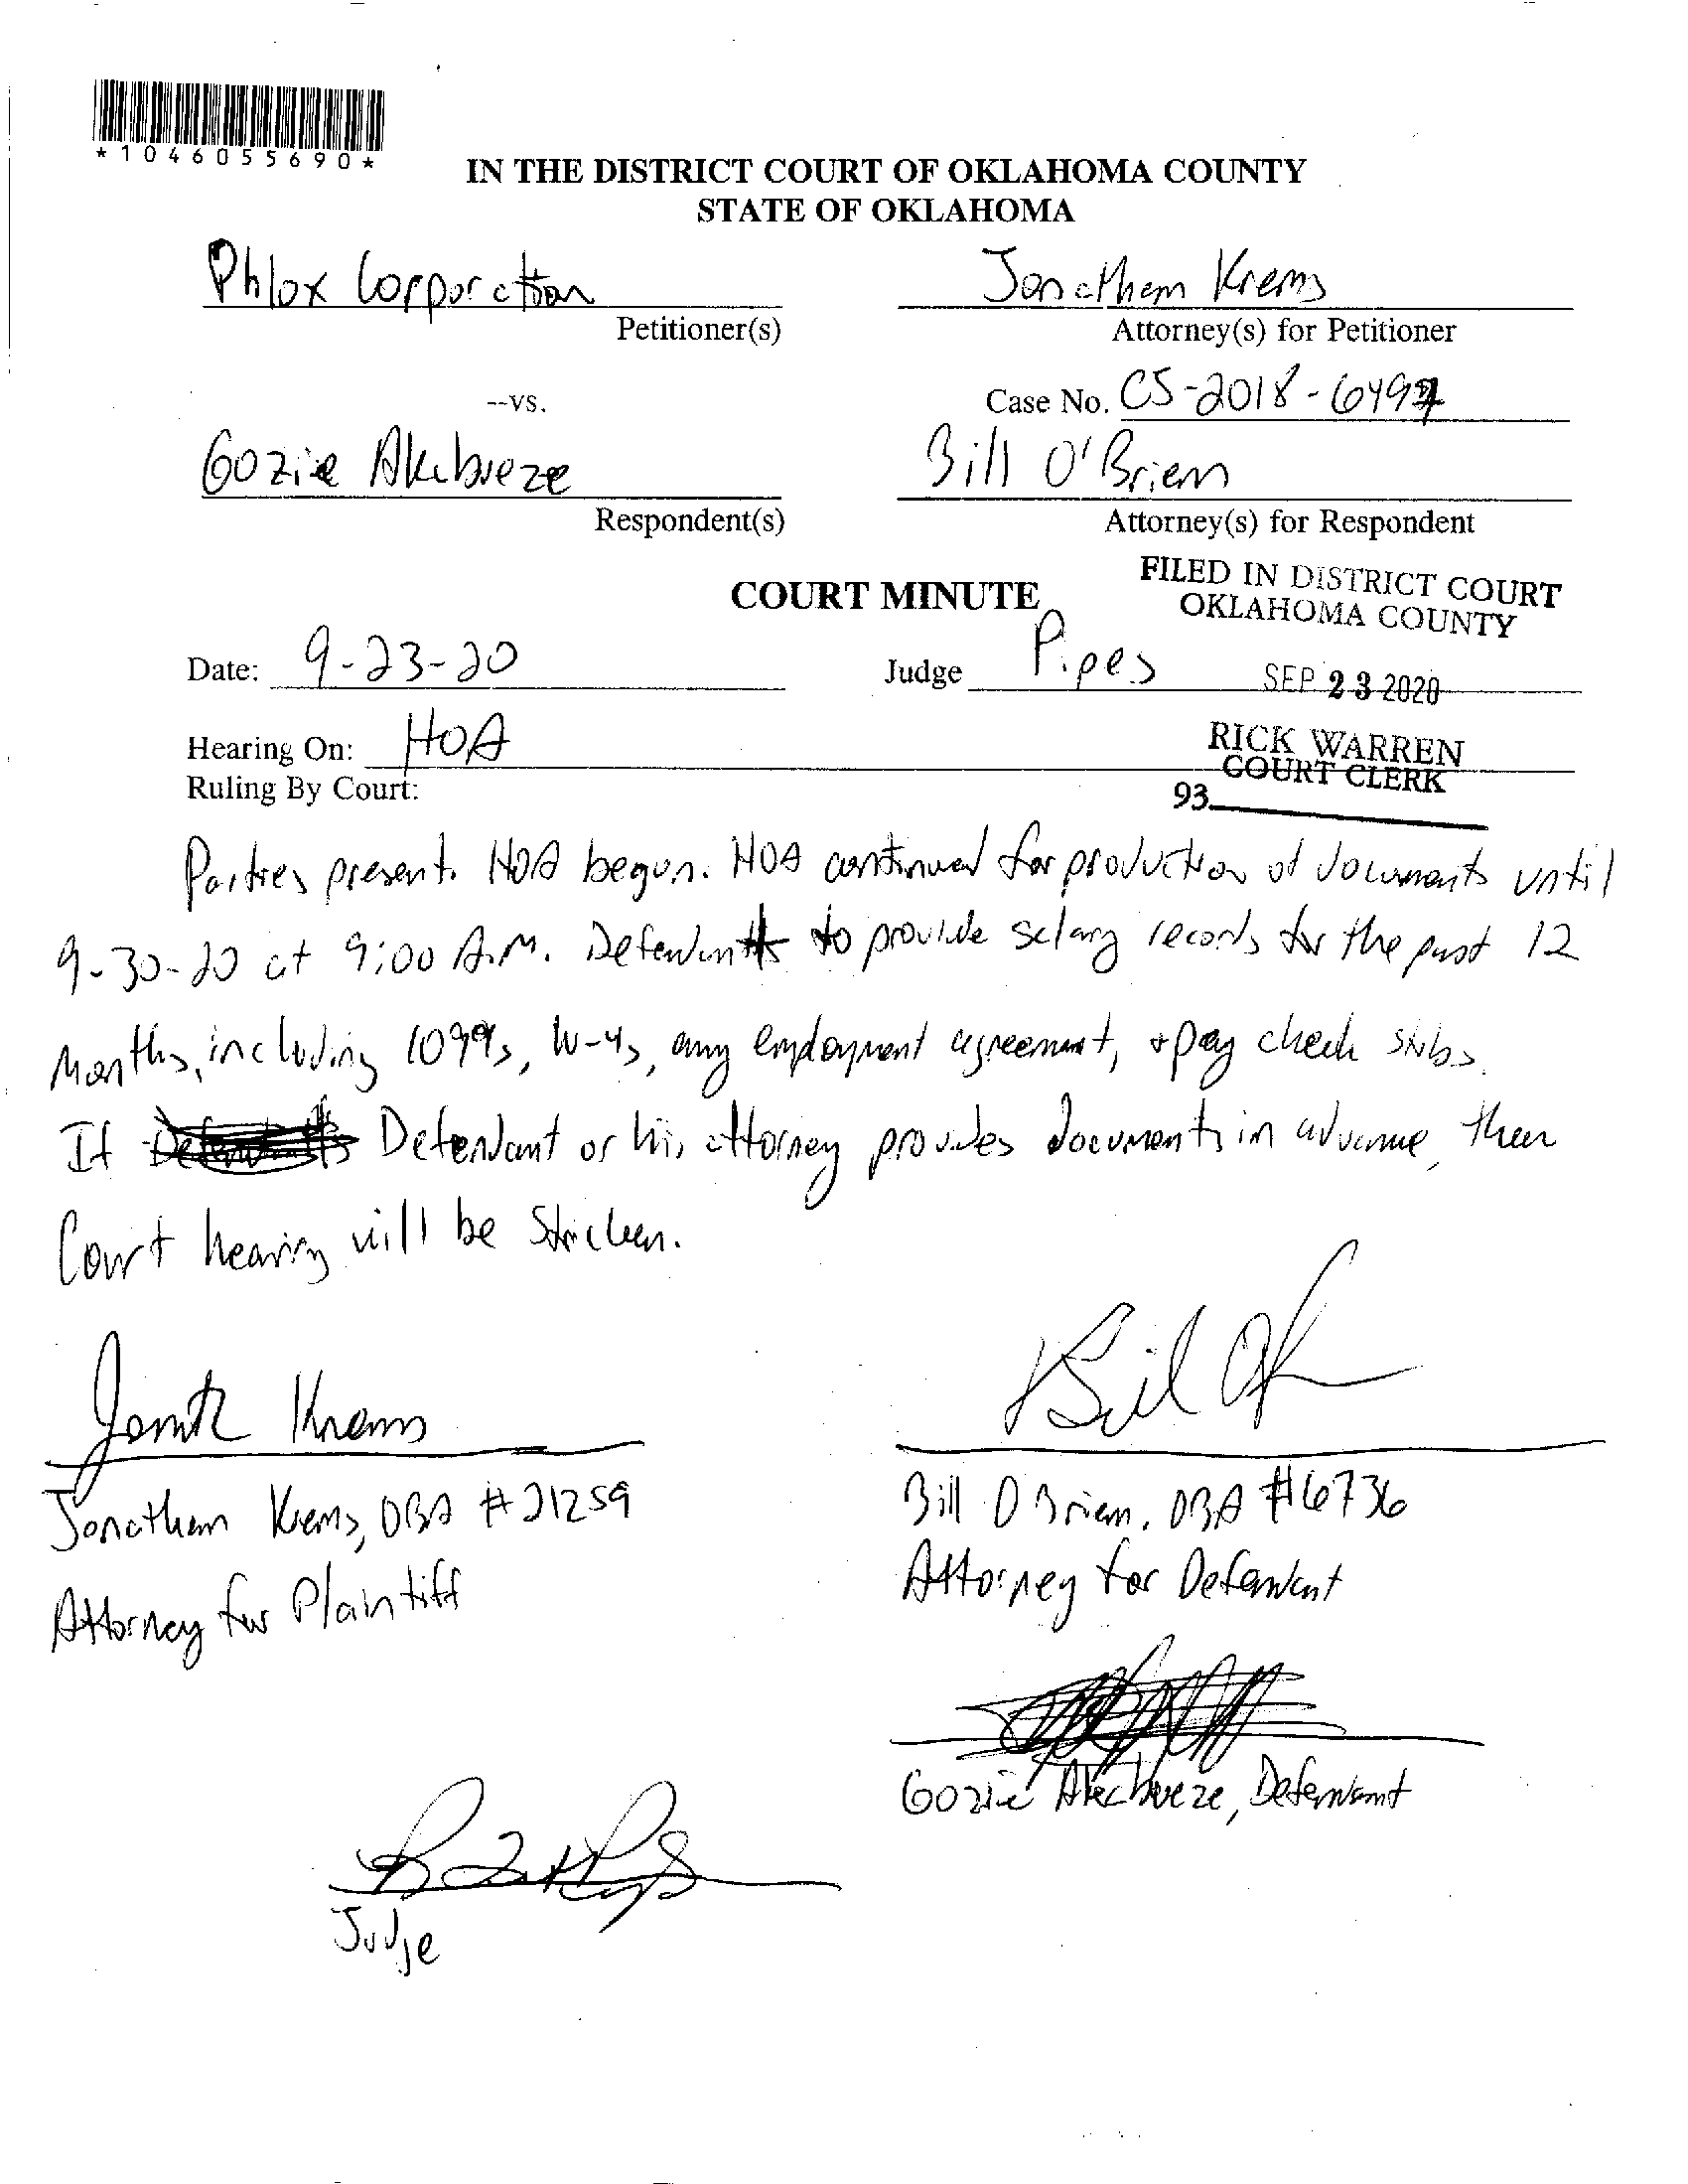 *1046055690*
IN THE DISTRICT COURT OF OKLAHOMA COUNTY
STATE OF OKLAHOMA
Phlox Corporation
Petitioner(s)
Jonathan Krems
Attorney(s) for Petitioner
--vs.
Case No. CS-2018-6497
Gozie
Respondent(s)
Bill O'Brien
Attorney(s) for Respondent
COURT MINUTE
FILED IN DISTRICT COURT
OKLAHOMA COUNTY
Date: 9-23-20
Judge Pipes
SEP 23 2020
Hearing On: HOA
RICK WARREN
COURT CLERK
93
Ruling By Court:
Parties present. HOA begun. HOA continued for production of documents until
9-30-20 at 9:00 A.M. Defendant to provide salary records for the past 12
Months, including 1099s, W-4s, any employment agreement, + pay check stubs.
If Defendant or his attorney provides documents in advance, then
Court hearing will be Stricken.
Jonathan Krems, OBA #21259
Attorney for Plaintiff
Bill O Brien, OBA #6736
Attorney for Defendant
Gozie Defendant
Judge